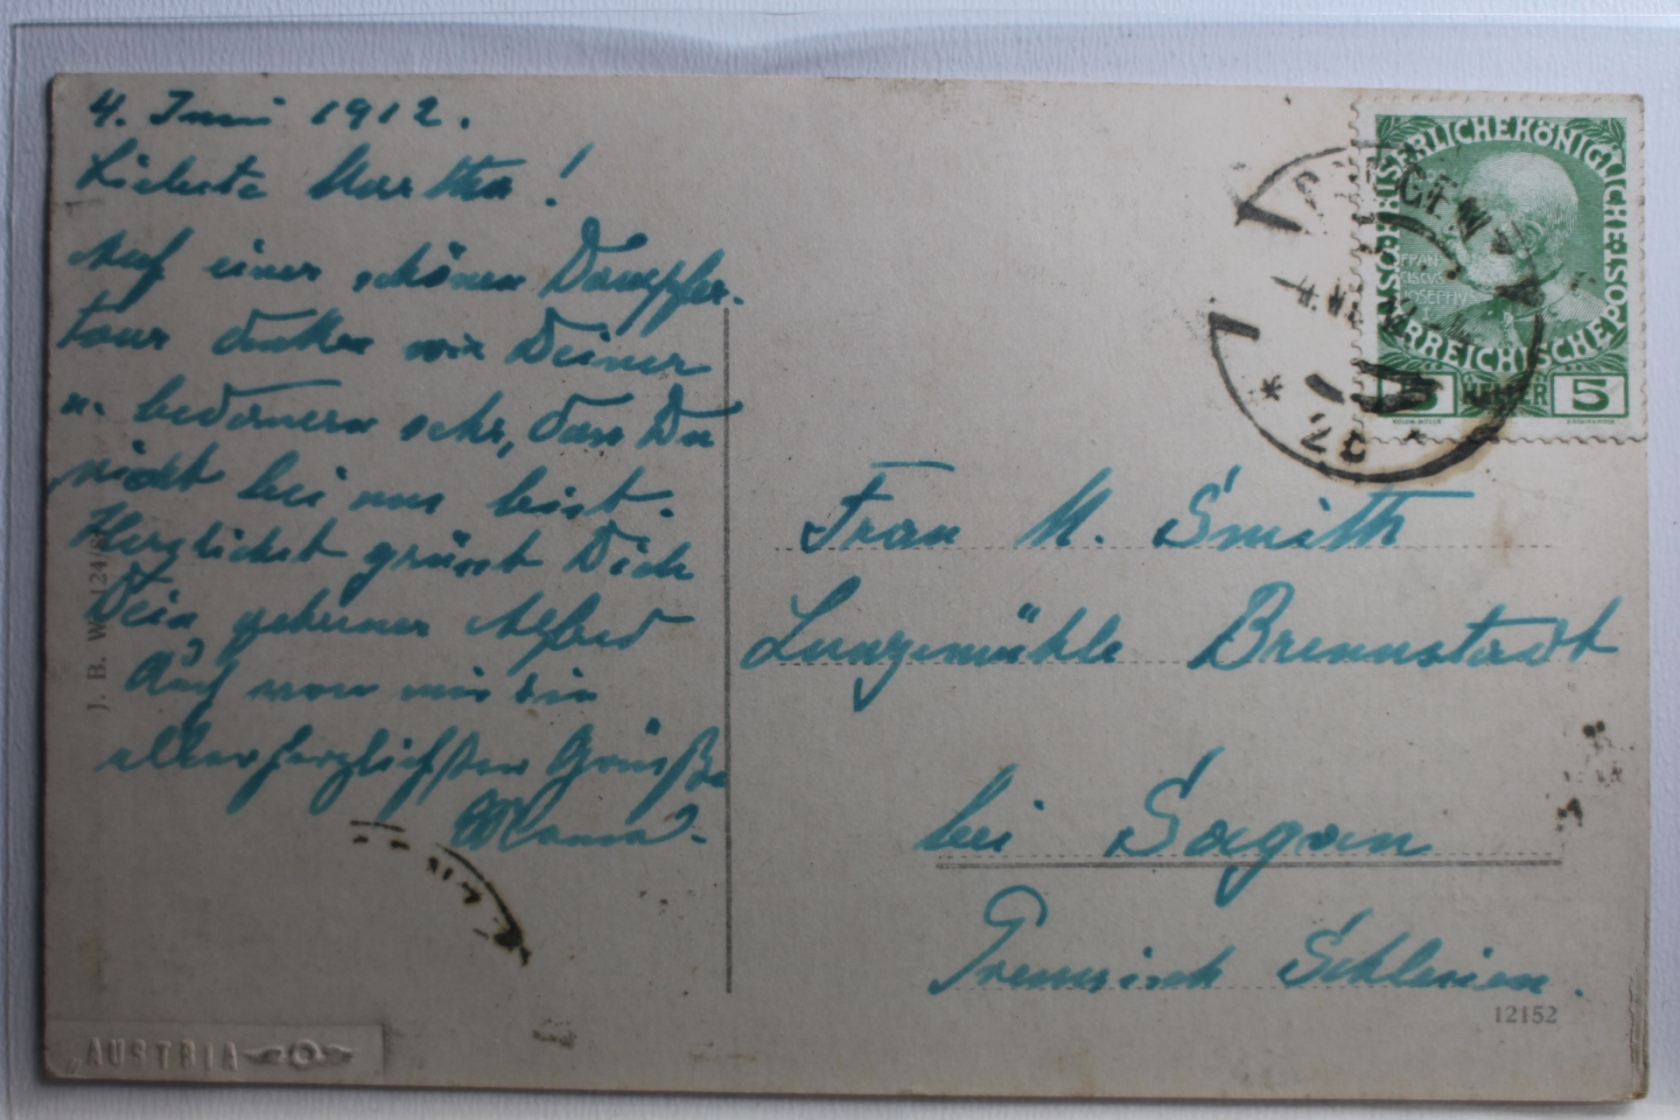 4. Juni 1912.
Liebste Martha!
Auf einer schönen Dampfer-
tour denken wir Deiner
u. bedauern sehr, dass Du
nicht bei uns bist.
Herzlichst grüsst Dich
Dein Alfred
Auch von mir die
allerherzlichsten Grüße
Mama.
J. B. W. 124/
"AUSTRIA
KAISERLICHE KÖNIGLICHE
ÖSTERREICHISCHE POST
FRAN-
CISCVS
JOSEPHVS
5 HELLER 5
* 2b *
Frau M. Smith
Brennstadt
bei Sagan
Preussisch Schlesien.
12152